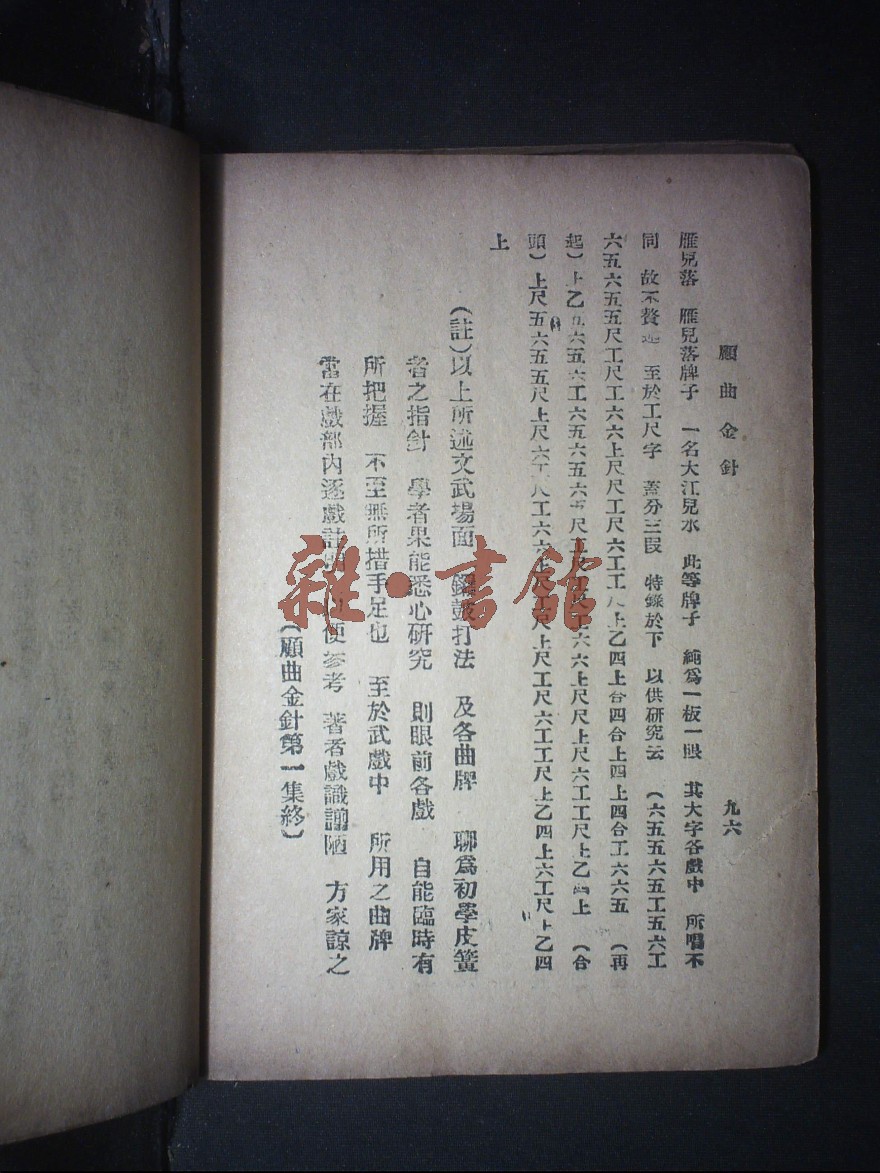 顧曲金針
九六
雁兒落 雁兒落牌子 一名大江兒水 此等牌子 純爲一板一眼 其大字各戲中 所唱不
同 故不贅述 至於工尺字 蓋分三段 特錄於下 以供研究云 (六五五六五工五六工
六五六五五尺工尺工六六上尺尺工尺六工工尺上乙四上合四合上四上四合工六六五 (再
起)上乙五六五六工六五六五六五尺工 工六六上尺尺上尺六工工尺上乙四上 (合
頭)上尺五六五五尺上尺六工尺工六六上尺工尺上尺工尺六工工尺上乙四上六工尺上乙四
上
(註)以上所述文武場面 鑼鼓打法 及各曲牌 聊爲初學皮簧
者之指針 學者果能悉心研究 則眼前各戲 自能臨時有
所把握 不至無所措手足也 至於武戲中 所用之曲牌
當在戲部內逐戲註 便參考 著者戲識謭陋 方家諒之
(顧曲金針第一集終)
雜·書館